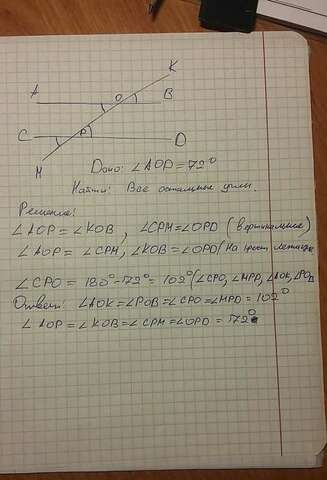 K
A
O
B
C
P
D
M
Дано: ∠AOP=78°
Найти: Все остальные углы.
Решение:
∠AOP=∠KOB, ∠CPM=∠OPD (вертикальные)
∠AOP=∠CPM, ∠KOB=∠OPD (На крест
∠CPO = 180°-78°= 102° (∠CPO, ∠MPD, ∠AOK, ∠POB
Ответ: ∠AOK=∠POB=∠CPO=∠MPD=102°
∠AOP=∠KOB=∠CPM=∠OPD=78°